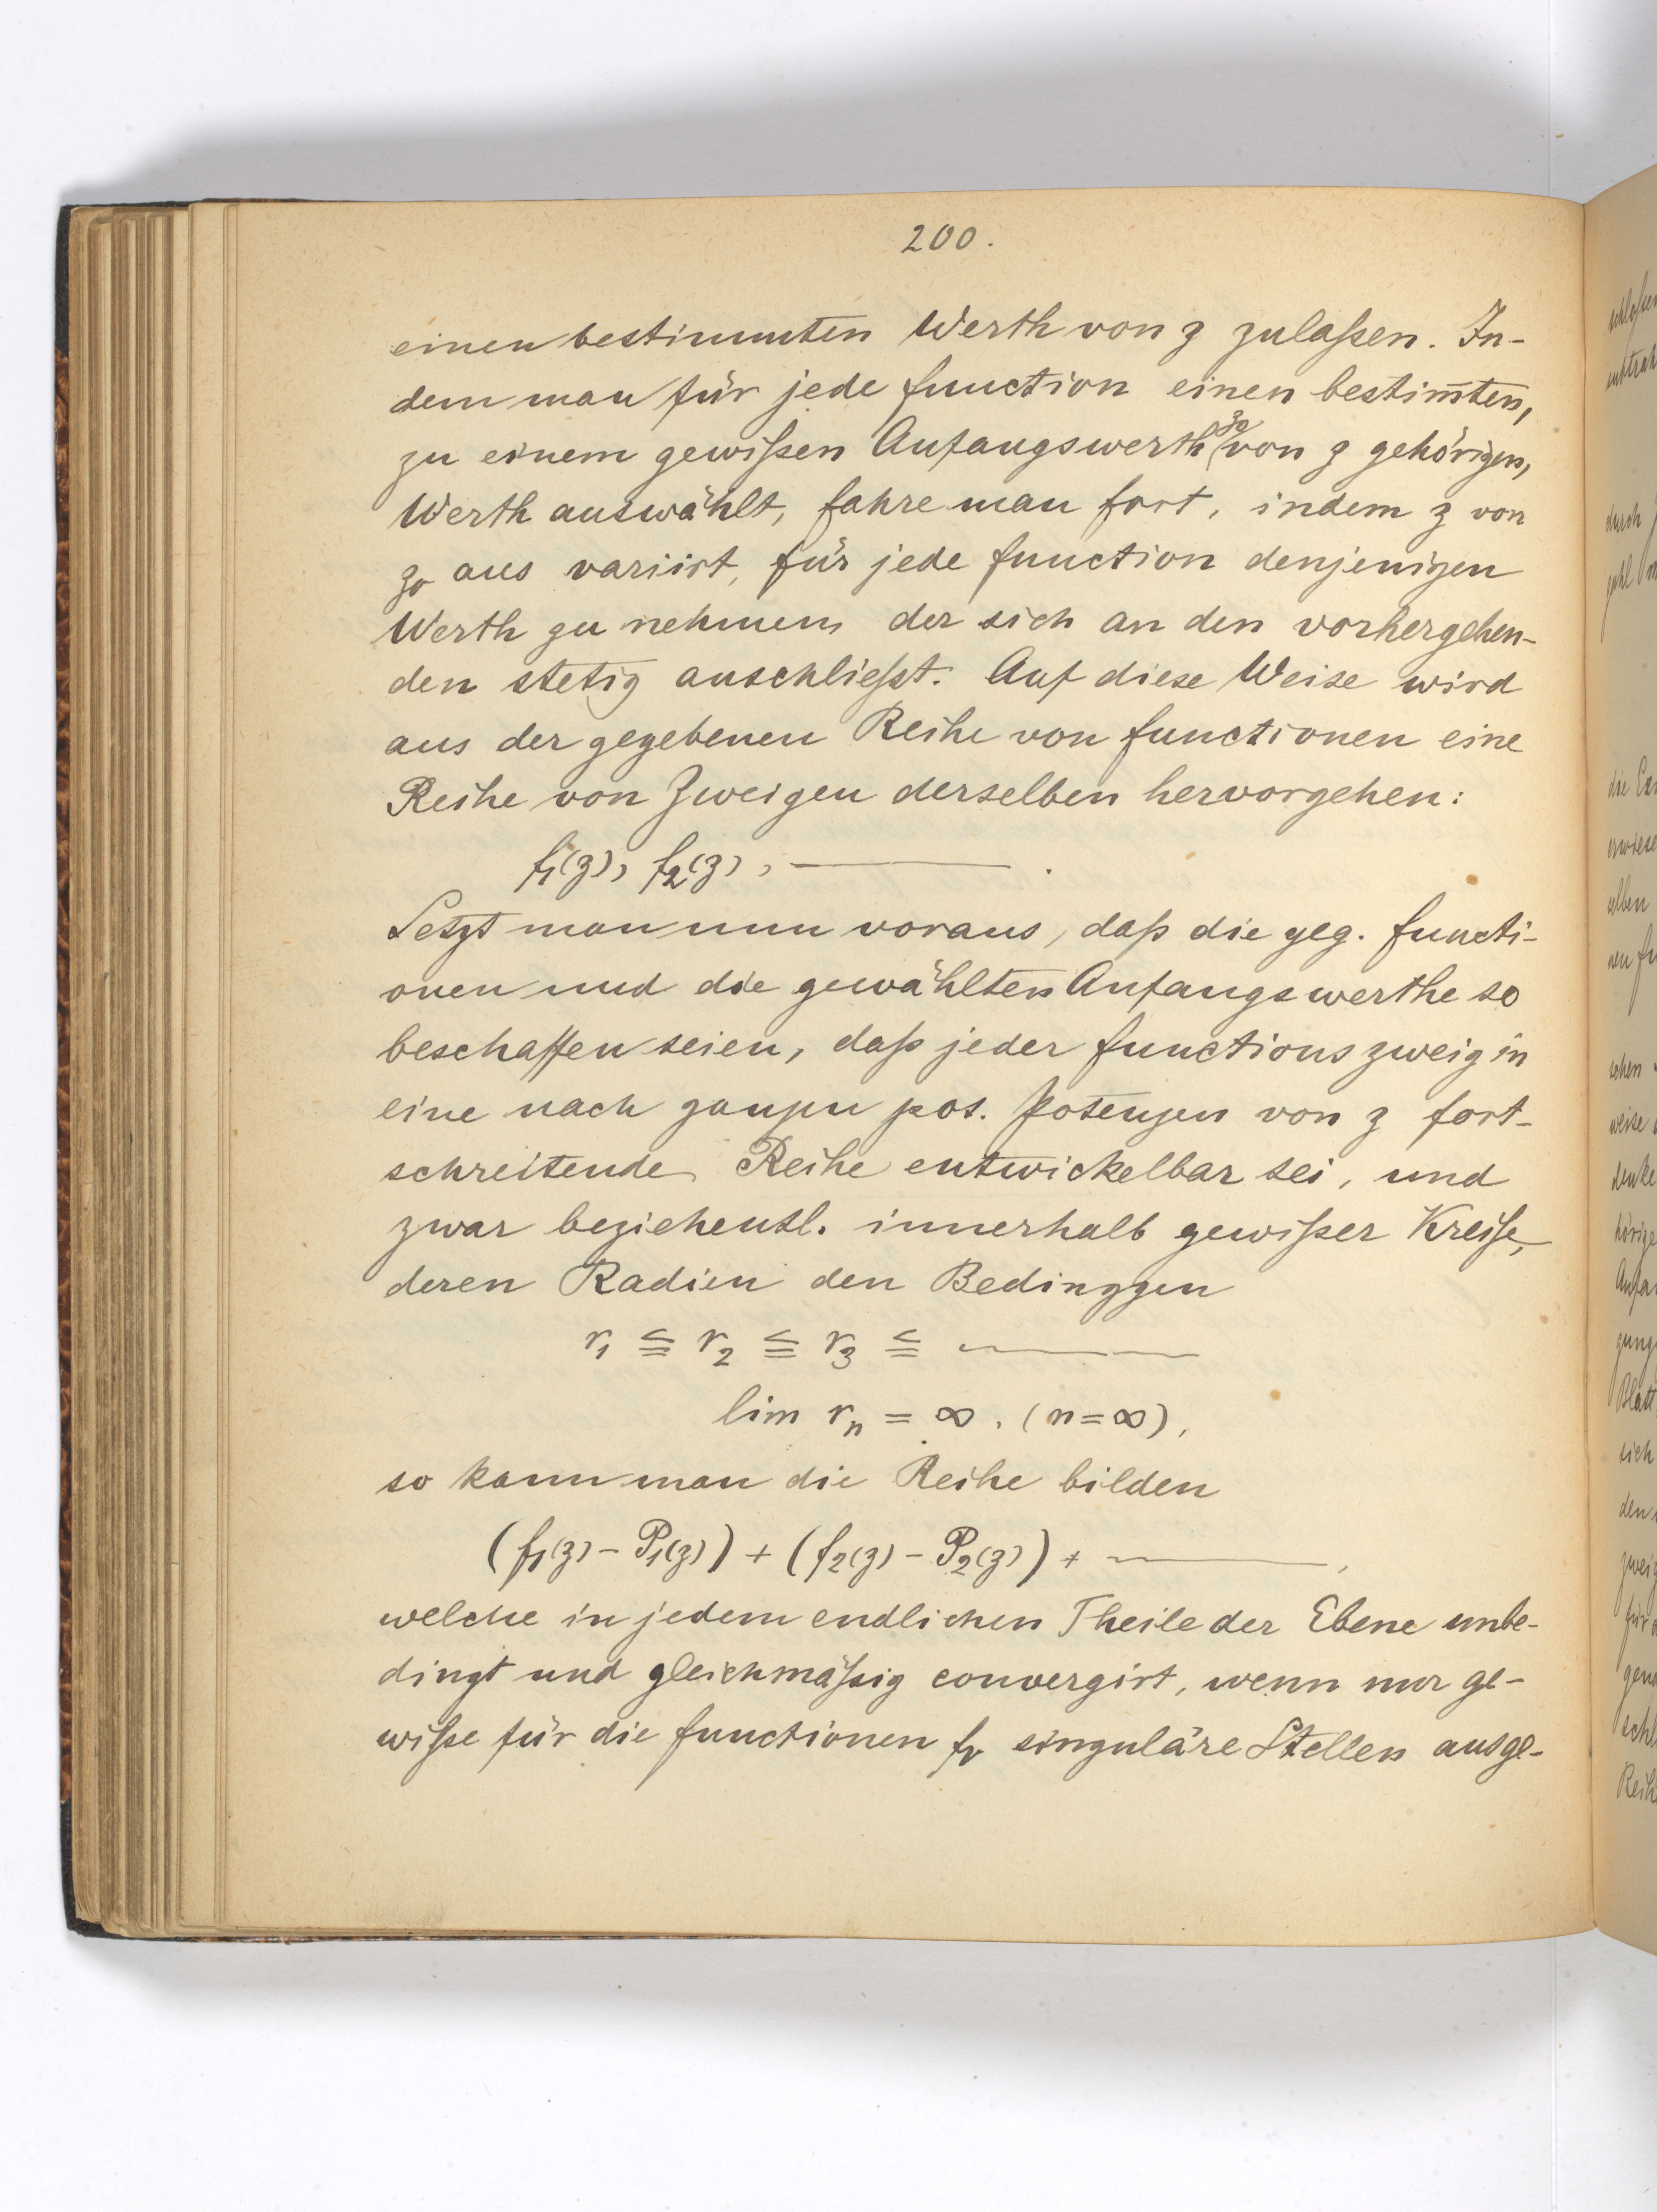 200.
einen bestimmten Werth von z zulaßen. In-
dem man für jede function einen bestim̅ten,
zu einem gewißen Anfangswerth z₀ von z gehörigen,
Werth auswählt, fahre man fort, indem z von
z₀ aus variirt, für jede function denjenigen
Werth zu nehmen, der sich an den vorhergehen-
den stetig anschließt. Auf diese Weise wird
aus der gegebenen Reihe von functionen eine
Reihe von Zweigen derselben hervorgehen:
f₁(z), f₂(z), ———.
Setzt man nun voraus, daß die geg. functi-
onen und die gewählten Anfangswerthe so
beschaffen seien, daß jeder functionszweig in
eine nach ganzen pos. Potenzen von z fort-
schreitende Reihe entwickelbar sei, und
zwar beziehentl. innerhalb gewißer Kreise,
deren Radien den Bedinggen
r₁ ≦ r₂ ≦ r₃ ≦ ———
lim rₙ = ∞. (n=∞),
so kann man die Reihe bilden
(f₁(z) – P₁(z)) + (f₂(z) – P₂(z)) + ———,
welche in jedem endlichen Theile der Ebene unbe-
dingt und gleichmäßig convergirt, wenn nur ge-
wiße für die functionen fᵥ singuläre Stellen ausge-